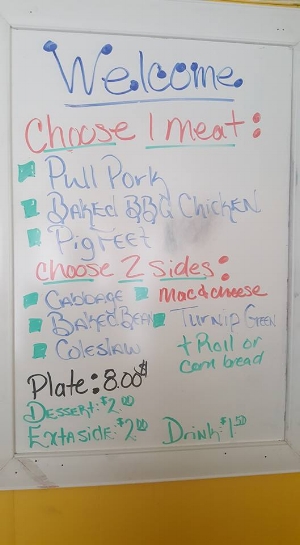 Welcome
Choose 1 meat:
Pull Pork
Baked BBQ Chicken
Pig Feet
choose 2 sides:
Cabbage Mac & cheese
Baked Bean Turnip Geen
Coleslaw + Roll or
corn bread
Plate: 8.00$
Dessert: $2.00
Exta side: $2.00 Drink: $1.50